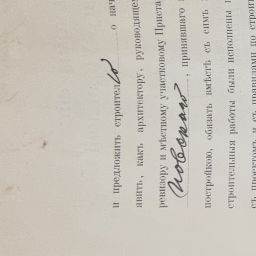 и предложить строителю о нач
явить, какъ архитектору, руководящем
ревизору и мѣстному участковому Приста
, принявшаго
постройкою, обязать вмѣстѣ съ симъ
строительныя работы были исполнены
съ проектомъ и съ правилами по строи